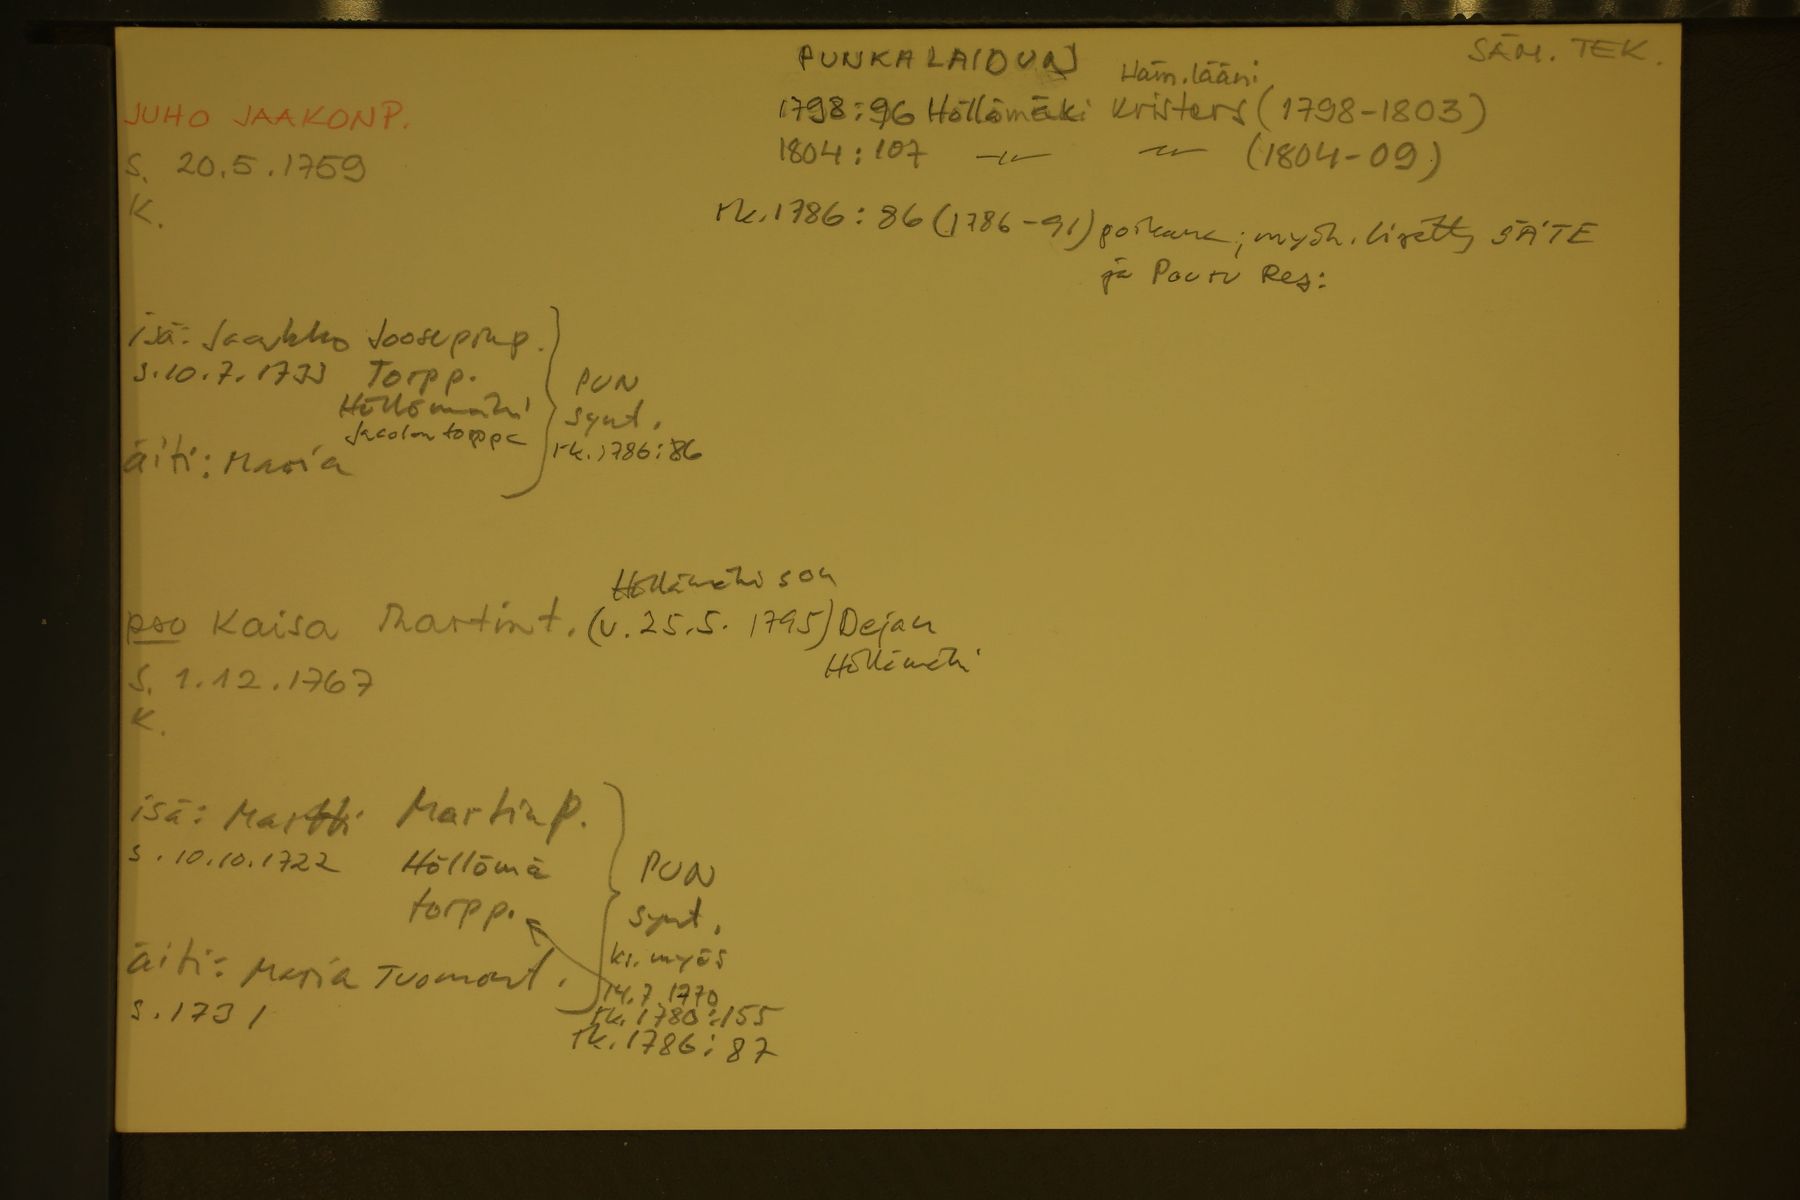 SÄM. TEK.
PUNKALAIDUN
Häm. lääni
JUHO JAAKONP.
1798:96 Höllömäki Kristers (1798-1803)
S. 20.5.1759
1804:107 -"- -"- (1804-09)
K.
rk. 1786:86 (1786-91) poikana; myöh. lisätty SÄTE
ja Pouru Res:
isä: Jaakko Joosepinp.
s. 10.7.1733 Torpp.
Höllömäki
Jacolan torppa
äiti: Maria
PUN
synt.
rk. 1786:86
Höllämäki son
pso Kaisa Martint. (v. 25.5. 1795) Dejan
Höllämäki
S. 1.12.1767
K.
isä: Martti Martinp.
s. 10.10.1722 Höllömä
torpp.
äiti: Maria Tuomont.
s. 1731
PUN
synt.
ks. myös
14.7.1770
rk. 1780:155
rk. 1786:87